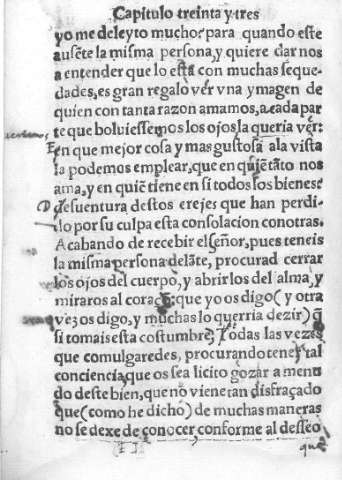 Capitulo treinta y tres
yo me deleyto mucho: para quando este
ausẽte la misma persona, y quiere dar nos
a entender que lo està con muchas seque-
dades, es gran regalo ver vna ymagen de
quien con tanta razon amamos, a cada par
te que boluiessemos los ojos, la queria ver:
en que mejor cosa y mas gustosa a la vista
la podemos emplear, que en quiẽ tãto nos
ama, y en quiẽ tiene en si todos los bienes?
desuentura destos erejes que han perdi-
do por su culpa esta consolacion con otras.
Acabando de recebir el señor, pues teneis
la misma persona delãte, procurad cerrar
los ojos del cuerpo, y abrir los del alma, y
miraros al coraçõ: que yo os digo (y otra
vez os digo, y muchas lo querria dezir) q̃
si tomais esta costumbre, todas las vezes
que comulgaredes, procurando tener tal
conciencia, que os sea licito gozar a menu
do deste bien, que no viene tan disfraçado
que (como he dicho) de muchas maneras
no se dexe de conocer, conforme al desseo
que